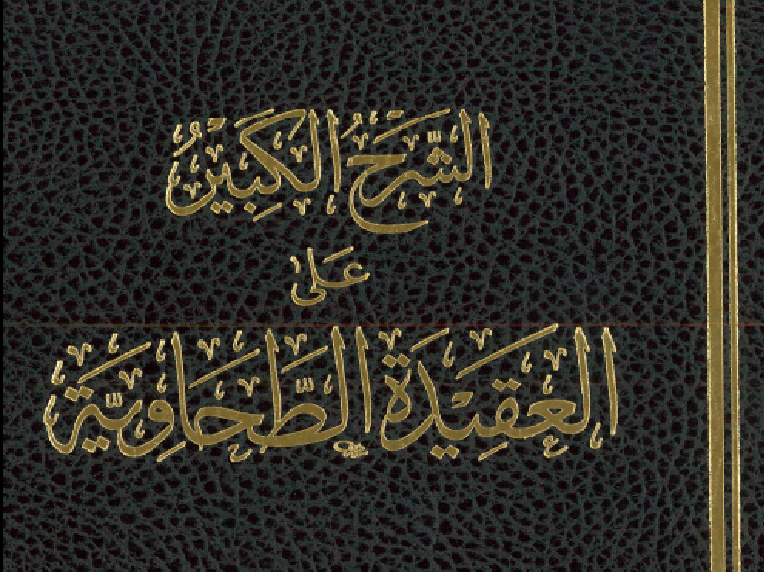 الشَّرْحُ الكَبِيْرُ
عَلَى
العَقِيْدَة الطَّحَاوِيَّة